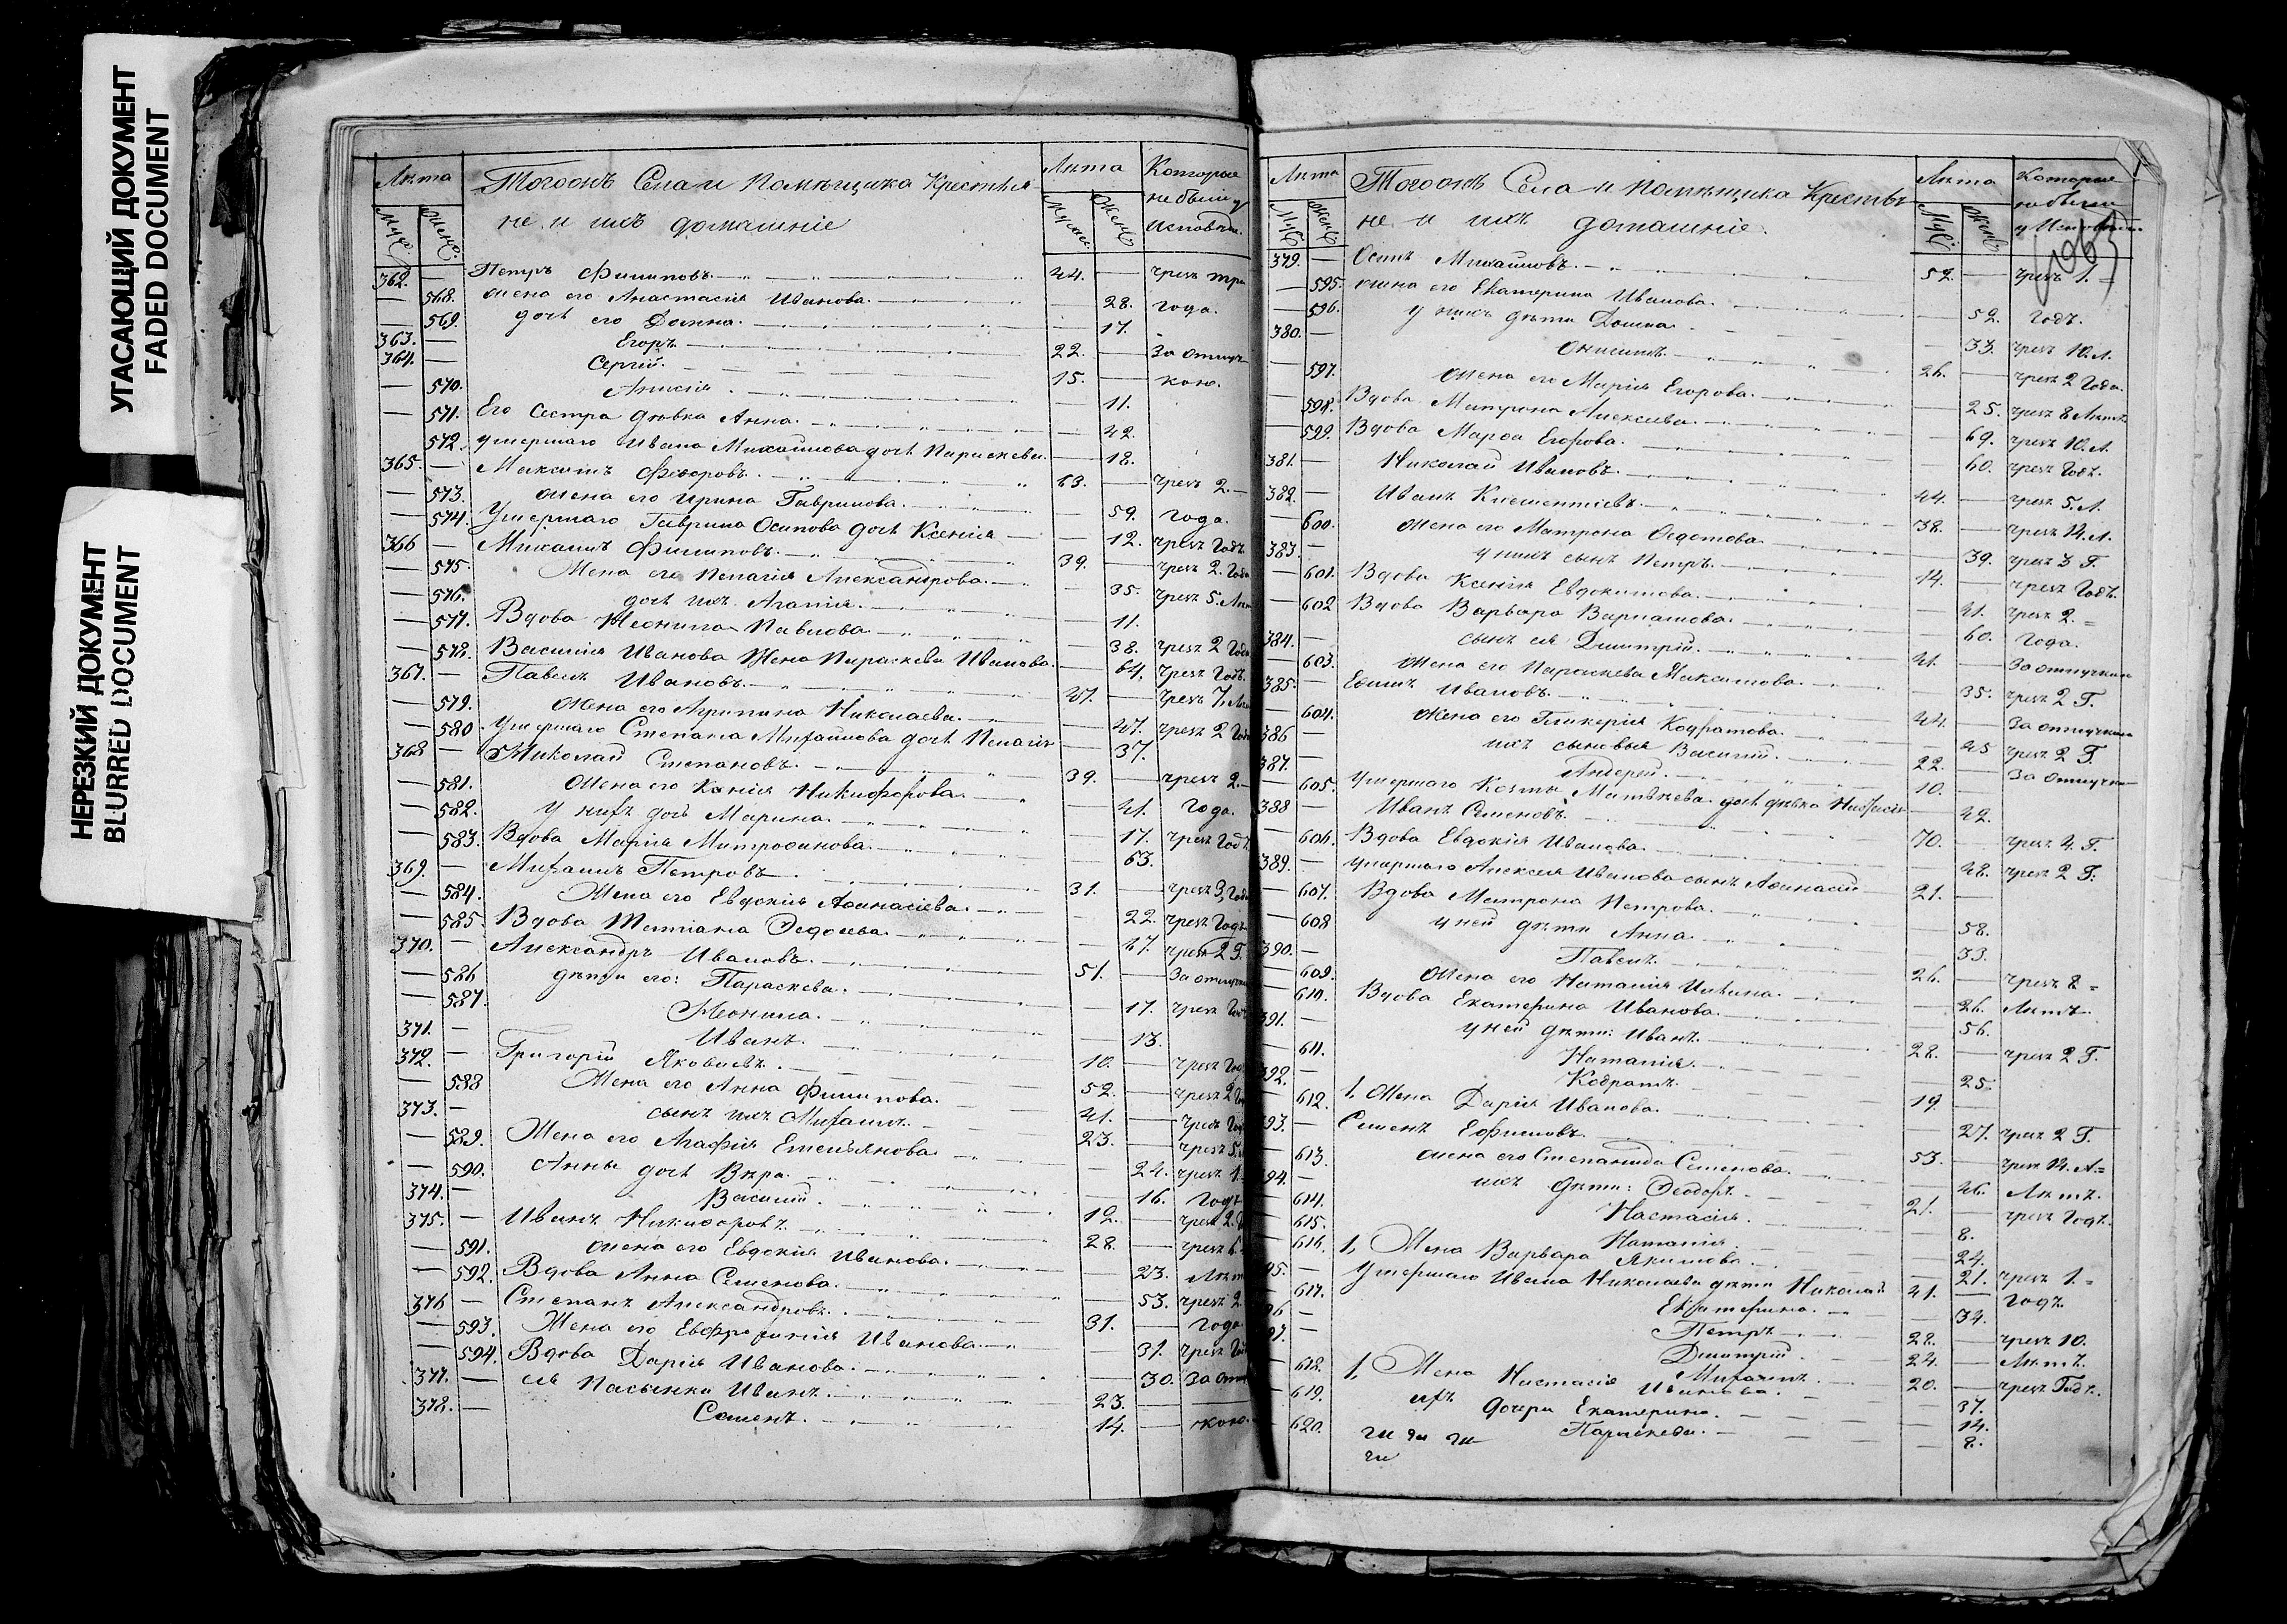 УГАСАЮЩИЙ ДОКУМЕНТ
FADED DOCUMENT
НЕРЕЗКИЙ ДОКУМЕНТ
BLURRED DOCUMENT
Лѣта Тогоожъ Села и Помѣщика Крестья Лѣта Которые
не и ихъ домашніе небыли у
Исповѣди.
362. — Петръ Филиповъ. 44. — чрезъ три
— 568. жена его Анастасія Иванова. — 28. года.
— 569. дочь его Домна. — 17.
363. — Егоръ. 22. — За отлуч
364. — Сергій. 15. — кою.
— 570. Анисія. — 11.
— 571. Его Сестра дѣвка Анна. — 42.
— 572. умершаго Ивана Михайлова дочь Параскева. — 18.
365. — Максимъ Феодоровъ. 63. — чрезъ 2.
— 573. жена его Ирина Гаврилова. — 59. года.
— 574. Умершаго Гаврила Осипова дочь Ксенія — 12. чрезъ Годъ.
366 — Михаилъ Филиповъ. 39. — чрезъ 2. Года
— 575. Жена его Пелагія Александрова. — 35. чрезъ 5.
— 576. дочь ихъ Агапія. — 11.
— 577. Вдова Неонила Павлова — 38. чрезъ 2 Года
— 578. Василія Иванова Жена Параскева Иванова. — 64. чрезъ Годъ.
367. — Павелъ Ивановъ. 47. — чрезъ 7.
— 579. Жена его Агрипина Николаева. — 47. чрезъ 2 Года
— 580. Умершаго Степана Михайлова дочь Пелагія — 37.
368 — Николай Степановъ. 39. — чрезъ 2.
— 581. Жена его Ксенія Никифорова. — 41. года.
— 582. У нихъ дочь Марина. — 17. чрезъ Годъ.
— 583. Вдова Марія Митрофанова. — 63.
369. — Михаилъ Петровъ 31. — чрезъ 3, Года
— 584. Жена его Евдокія Афанасіева. — 22. чрезъ Годъ
— 585. Вдова Татіана Федосеева. — 67. чрезъ 2 Г.
370. — Александръ Ивановъ. 51. — За отлучк
— 586 дѣти его: Параскева. — 17. чрезъ
— 587. Неонила. — 13.
371. — Иванъ. 10. — чрезъ
372. — Григорій Яковлевъ. 52. — чрезъ 2
— 588 Жена его Анна Филипова. 41. — чрезъ
373. — сынъ ихъ Михаилъ. 23. — чрезъ 5.
— 589. Жена его Агафія Емельянова — 24. чрезъ 1.
— 590. Анны дочь Вѣра. — 16. Годъ
374. — Василій. 12. — чрезъ 2.
375. — Иванъ Никифоровъ. 28. — чрезъ 6.
— 591. жена его Евдокія Иванова. — 23.
— 592. Вдова Анна Семенова. — 53. чрезъ 2.
376 — Степанъ Александровъ. 31. — года
— 593. Жена его Евфросинія Иванова. — 31. чрезъ
— 594. Вдова Дарія Иванова. — 30. За отл
377. — ея Пасынки Иванъ. 23. —
378. — Семенъ. 14. — кою.
Лѣта Тогоожъ Села и Помѣщика Крестья Лѣта Которые
не и ихъ домашніе. небыли
379. — Осипъ Михайловъ. 52. — чрезъ 1.
— 595. жена его Екатерина Иванова. — 52. Годъ.
— 596. у нихъ дѣти Домна — 33. чрезъ 10. Л.
380. — Онисимъ. 26. — чрезъ 2 Года.
— 597. жена его Марія Егорова. — 25. чрезъ 8 Лѣтъ
— 598. Вдова Матрона Алексѣева. — 69. чрезъ 10. Л.
— 599. Вдова Марфа Егорова. — 60. чрезъ Годъ.
381. — Николай Ивановъ. 44. — чрезъ 5. Л.
382. — Иванъ Клементіевъ. 38. — чрезъ 14. Л.
— 600. жена его Матрона Федотова. — 39. чрезъ 3 Г.
383 — у нихъ сынъ Петръ. 14. — чрезъ Годъ.
— 601. Вдова Ксенія Евдокимова. — 41. чрезъ 2.
— 602 Вдова Варвара Варламова. — 60. года.
384. — сынъ ея Дмитрій. 41. — За отлучкою
— 603. жена его Параскева Максимова. — 35. чрезъ 2 Г.
385. — Ивановъ. 44. — За отлучкою
— 604. жена его Гликерія Кодратова. — 45 чрезъ 2 Г.
386 — ихъ сыновья Василій. 22. — За отлучкою
387. — Андрей. 10. —
— 605. умершаго Козмы Матвѣева дочь дѣвка — 42.
388 — Иванъ Семеновъ. 70. — чрезъ 4. Г.
— 606. Вдова Евдокія Иванова. — 48. чрезъ 2 Г.
389. — умершаго Алексея Иванова сынъ Афанасій 21. —
— 607. Вдова Матрона Петрова. — 58.
— 608 у ней дѣти Анна — 33.
390. — Павелъ. 26. — чрезъ 8
— 609. жена его Наталія Ильина. — 26. Лѣтъ.
— 610. Вдова Екатерина Иванова. — 56.
391. — у ней дѣти: Иванъ. 28. — чрезъ 2 Г.
— 611. Наталія. — 25.
392. — Кодратъ. 19. —
— 612. 1, Жена Дарія Иванова. — 27. чрезъ 2 Г.
393. — Семенъ Ефимовъ. 53. — чрезъ 14. Л.
— 613. жена его Степанида Семенова. — 46. Лѣтъ.
394. — ихъ дѣти: Феодоръ. 21. — чрезъ Годъ.
— 614. Настасія. — 8.
— 615. Наталія. — 24.
— 616. 1, Жена Варвара Якимова. — 21. чрезъ 1.
395. — Умершаго Ивана Николаева дѣти Николай 41. — годъ.
— 617. Екатерина. — 34.
396 — Петръ. 28. — чрезъ 10.
397. — Дмитрій. 24. — Лѣтъ.
Михаилъ. 20. — чрезъ Годъ.
— 618. 1, Жена Настасія Иванова. — 37.
— 619. ихъ дочери Екатерина. — 14.
— 620. Параскева. — 8.